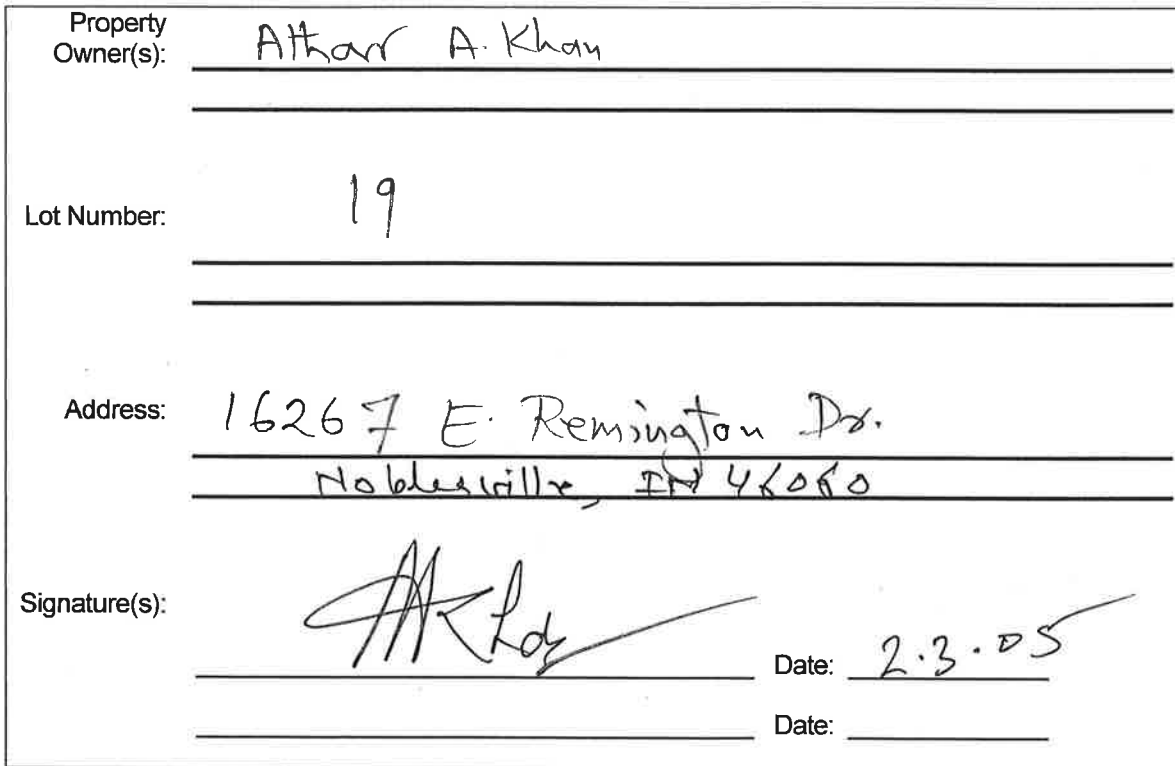 Property
Owner(s): Athar A. Khan
Lot Number: 19
Address: 16267 E. Remington Dr.
Noblesville, IN 46060
Signature(s):
Date: 2.3.05
Date: